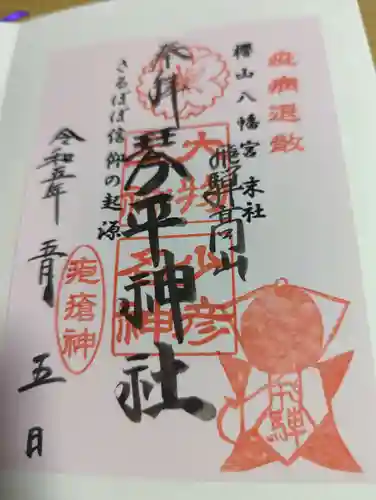 疫病退散
櫻山八幡宮末社
飛騨高山
奉拝
琴平神社
大物主神
少彦名神
さるぼぼ信仰の起源
疱瘡神
飛騨
令和五年
五月
五日